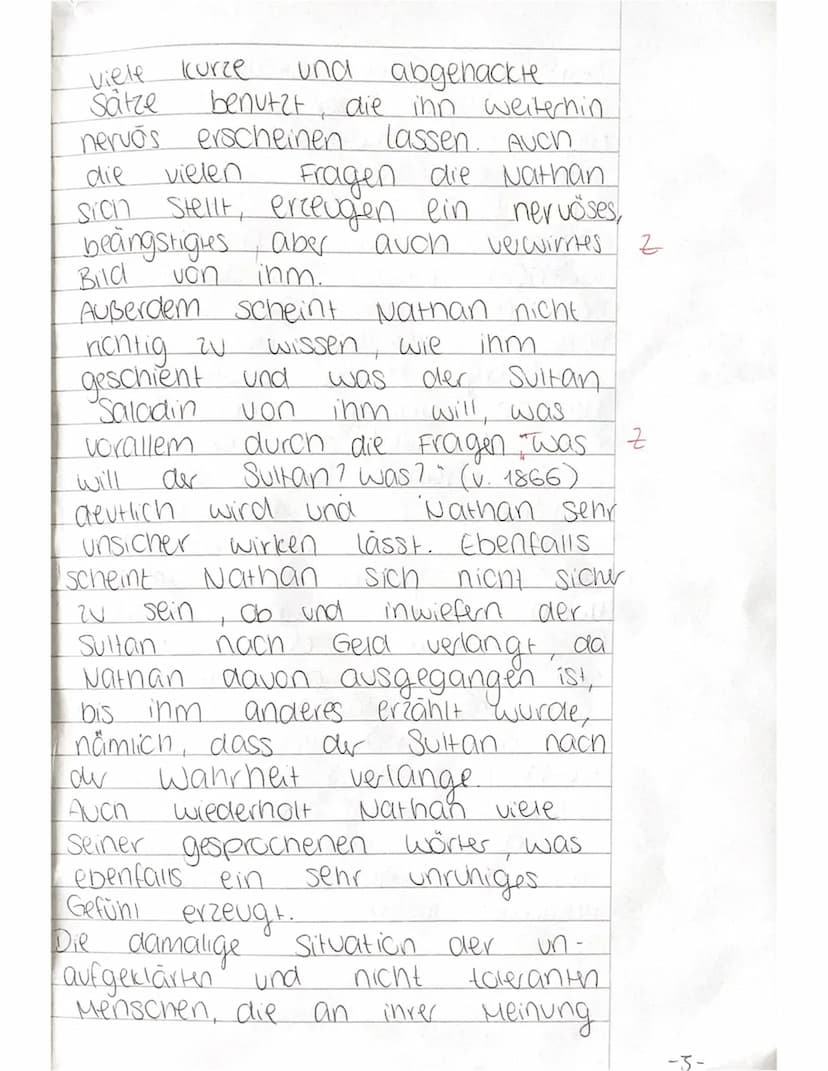 viele kurze und abgehackte
Sätze benutzt, die ihn weiterhin
nervös erscheinen lassen. Auch
die vielen Fragen die Nathan
sich stellt, erzeugen ein nervöses,
beängstigtes, aber auch verwirrtes Z
Bild von ihm.
Außerdem scheint Nathan nicht
richtig zu wissen, wie ihm
geschient und was der Sultan
Saladin von ihm will, was
vorallem durch die Fragen „was Z
will der Sultan? was?" (v. 1866)
deutlich wird und Nathan sehr
unsicher wirken lässt. Ebenfalls
scheint Nathan sich nicht sicher
zu sein, ob und inwiefern der
Sultan nach Geld verlangt, da
Nathan davon ausgegangen ist,
bis ihm anderes erzählt wurde,
nämlich, dass der Sultan nach
der Wahrheit verlange.
Auch wiederholt Nathan viele
seiner gesprochenen Wörter, was
ebenfalls ein sehr unruhiges
Gefühl erzeugt.
Die damalige Situation der un-
aufgeklärten und nicht toleranten
Menschen, die an ihrer Meinung
-3-